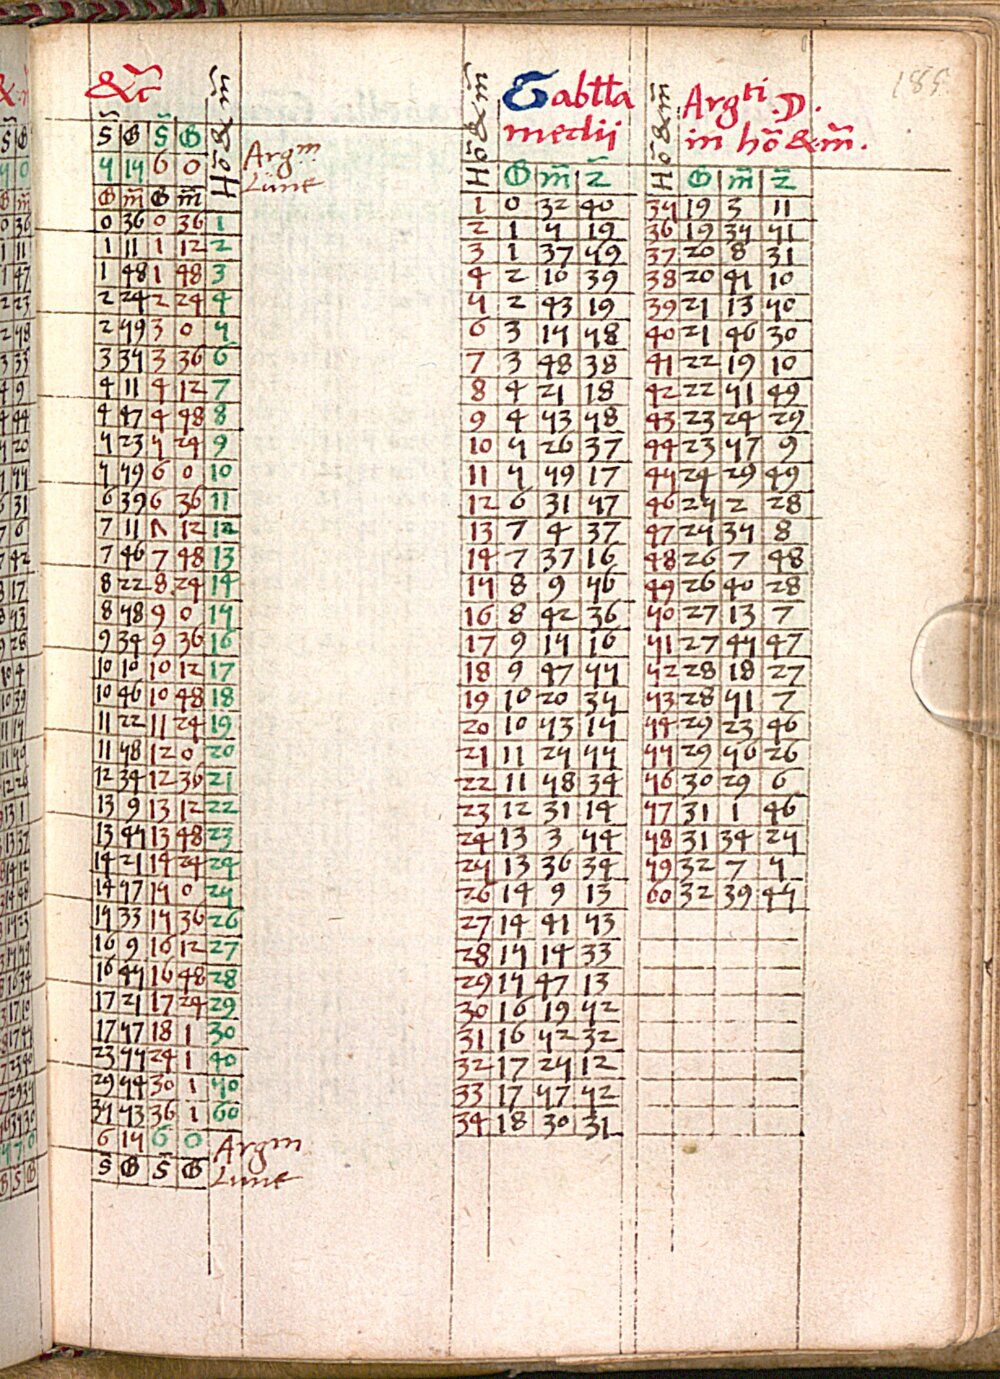 &c̄
Hō & m̄
s̄ G s̄ G
5 15 6 0
Argᵐ
Lune
G m̄ G m̄
0 36 0 36 1
1 11 1 12 2
1 48 1 48 3
2 24 2 24 4
2 59 3 0 5
3 35 3 36 6
4 11 4 12 7
4 47 4 48 8
5 23 5 24 9
5 59 6 0 10
6 39 6 36 11
7 11 7 12 12
7 46 7 48 13
8 22 8 24 14
8 58 9 0 15
9 34 9 36 16
10 10 10 12 17
10 46 10 48 18
11 22 11 24 19
11 58 12 0 20
12 34 12 36 21
13 9 13 12 22
13 45 13 48 23
14 21 14 24 24
14 57 15 0 25
15 33 15 36 26
16 9 16 12 27
16 45 16 48 28
17 21 17 24 29
17 57 18 1 30
23 55 24 1 40
29 54 30 1 50
35 53 36 1 60
6 15 6 0
s̄ G s̄ G
Argm
Lune
Hō & m̄
Tabtta
medii
G m̄ z̄
1 0 32 40
2 1 5 19
3 1 37 59
4 2 10 39
5 2 43 19
6 3 15 58
7 3 48 38
8 4 21 18
9 4 53 58
10 5 26 37
11 5 59 17
12 6 31 57
13 7 4 37
14 7 37 16
15 8 9 56
16 8 42 36
17 9 15 16
18 9 47 55
19 10 20 35
20 10 53 15
21 11 25 55
22 11 58 34
23 12 31 14
24 13 3 54
25 13 36 34
26 14 9 13
27 14 41 53
28 15 14 33
29 15 47 13
30 16 19 52
31 16 52 32
32 17 25 12
33 17 57 52
34 18 30 31
Hō & m̄
Argᵗⁱ D.
in hō & m̄.
G m̄ z̄
35 19 3 11
36 19 35 51
37 20 8 31
38 20 41 10
39 21 13 50
40 21 46 30
41 22 19 10
42 22 51 49
43 23 24 29
44 23 57 9
45 24 29 49
46 25 2 28
47 25 35 8
48 26 7 48
49 26 40 28
50 27 13 7
51 27 45 47
52 28 18 27
53 28 51 7
54 29 23 46
55 29 56 26
56 30 29 6
57 31 1 46
58 31 34 25
59 32 7 5
60 32 39 45